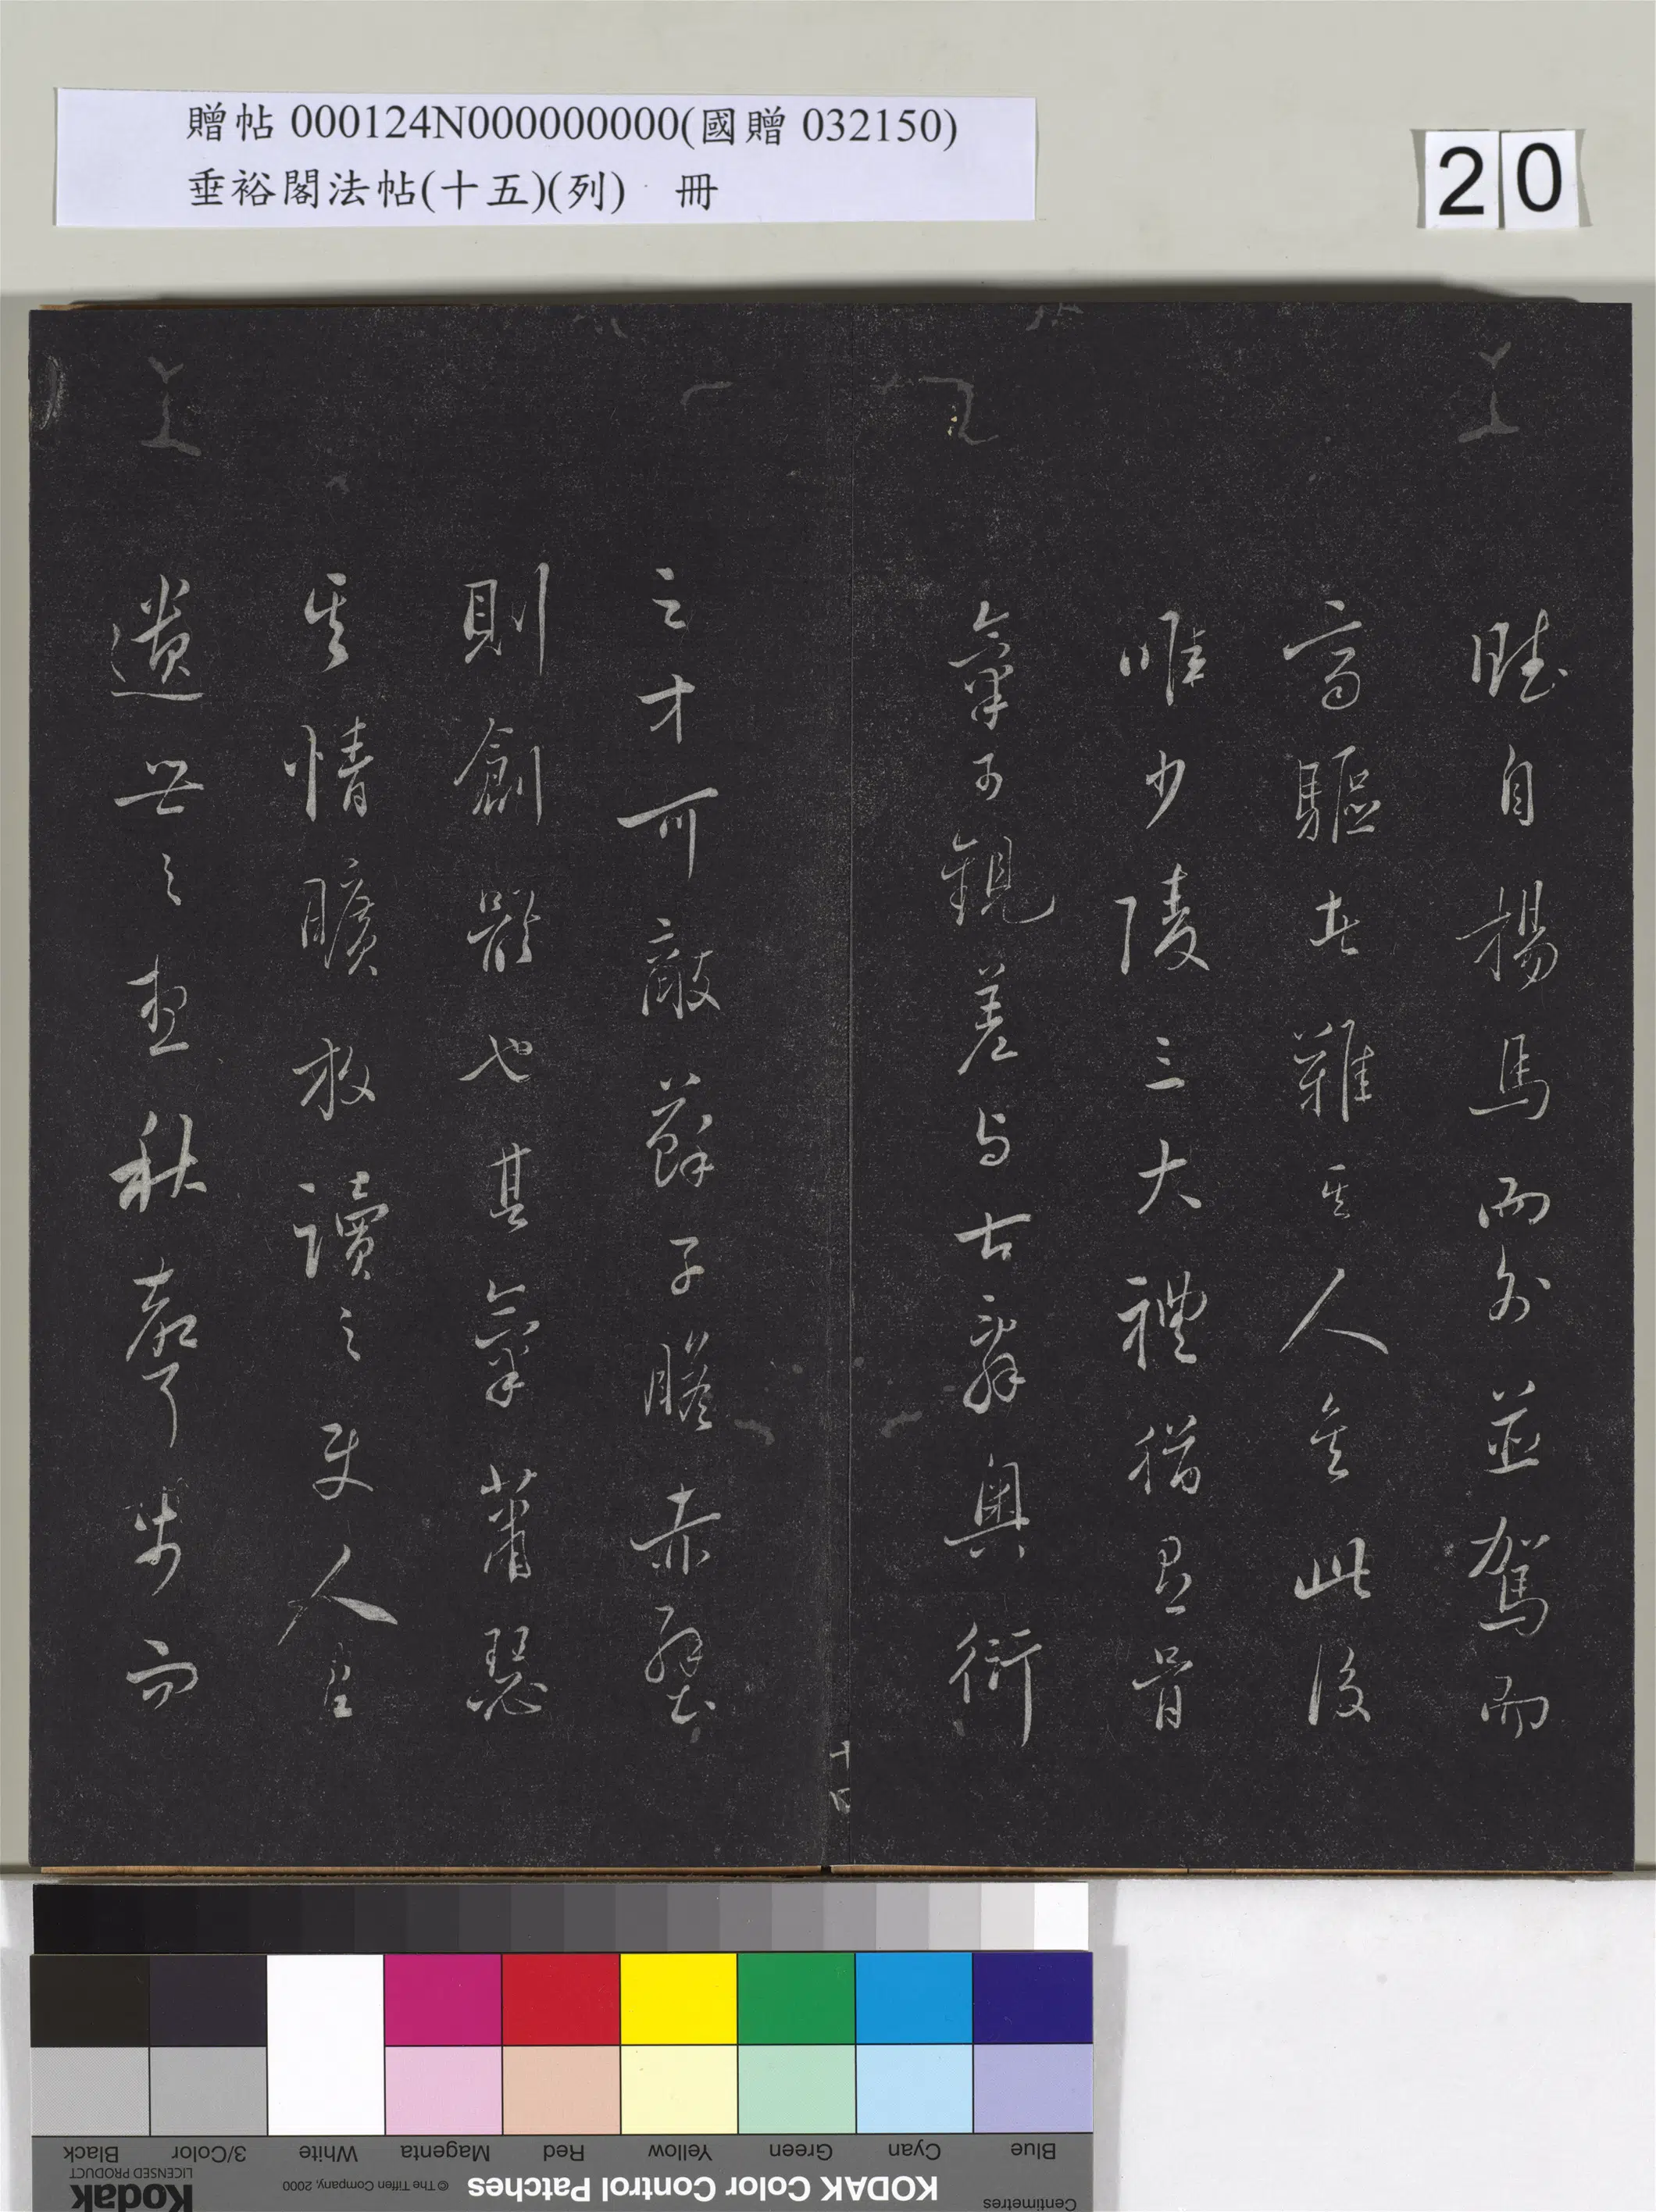 贈帖 000124N000000000(國贈 032150)
垂裕閣法帖(十五)(列) 冊
20
賦自揚馬而外並駕而
高驅者難其人矣此後
唯少陵三大禮猶具骨
氣可觀差與古辭奧衍
之才可敵蘇子瞻赤壁
則創器也其氣蕭瑟
其情曠放讀之更人有
遺世之想秋聲步而
十四
Black 3/Color White Magenta Red Yellow Green Cyan Blue
Kodak LICENSED PRODUCT © The Tiffen Company, 2000 KODAK Color Control Patches Centimetres